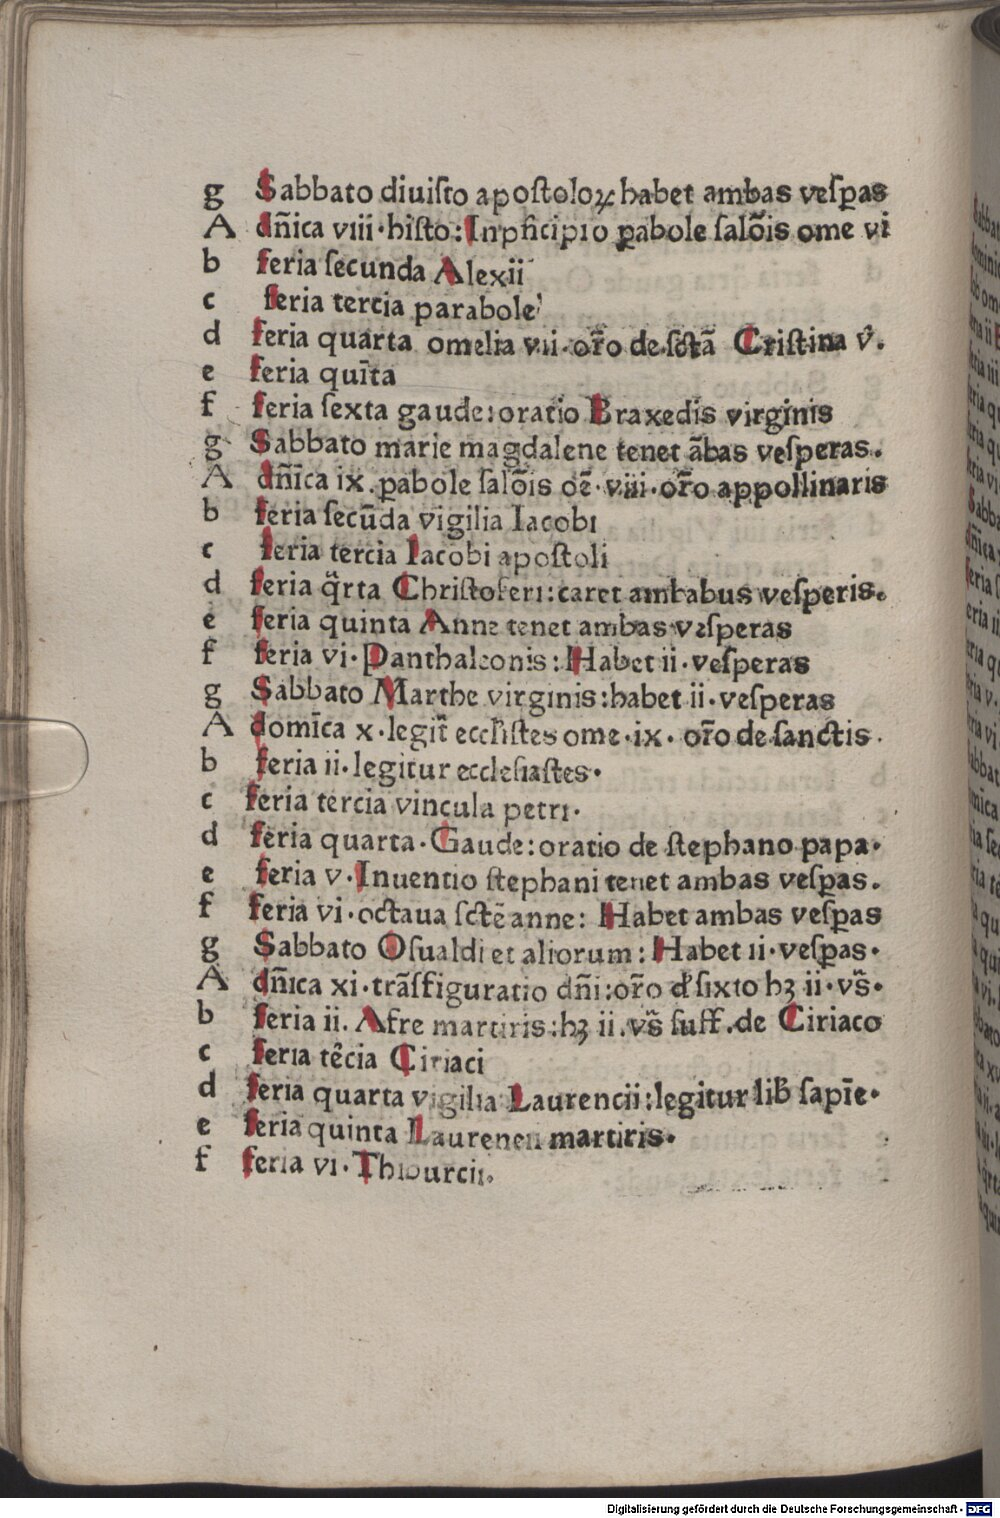 g Sabbato diuisio apostoloꝝ habet ambas vesꝑas
A dn̄ica viii·histo: In pn̄cipio ꝑabole salo᷒is ome vi
b feria secunda Alexii
c feria tercia parabole
d feria quarta omelia vii·or̄o de sctā Cristina v̄.
e feria quīta
f feria sexta gaude:oratio Braxedis virginis
g Sabbato marie magdalene tenet ābas vesperas.
A dn̄ica ix.ꝑabole salōis oē·viii·or̄o appollinaris
b feria secūda vigilia Iacobi
c feria tercia Iacobi apostoli
d feria q̄rta Christoferi:caret ambabus vesperis.
e feria quinta Anne tenet ambas vesperas
f feria vi·Panthaleonis:Habet ii·vesperas
g Sabbato Marthe virginis:habet ii·vesperas
A domīca x·legit̄ eccl̄istes ome·ix·or̄o de sanctis.
b feria ii·legitur ecclesiastes·
c feria tercia vincula petri·
d feria quarta·Gaude:oratio de stephano papa·
e feria v·Inuentio stephani tenet ambas vesꝑas.
f feria vi·octaua sctē anne: Habet ambas vesꝑas
g Sabbato Osualdi et aliorum:Habet ii·vesꝑas·
A dn̄ica xi·trāsfiguratio dn̄i:or̄o đ sixto hꝫ ii·vs̄·
b feria ii. Afre martiris:hꝫ ii.vs̄ suff.de Ciriaco
c feria tēcia Ciriaci
d feria quarta vigilia Laurencii:legitur lib̄ sapīe·
e feria quinta Laurencii martiris·
f feria vi·Thiburcii.
Digitalisierung gefördert durch die Deutsche Forschungsgemeinschaft - DFG